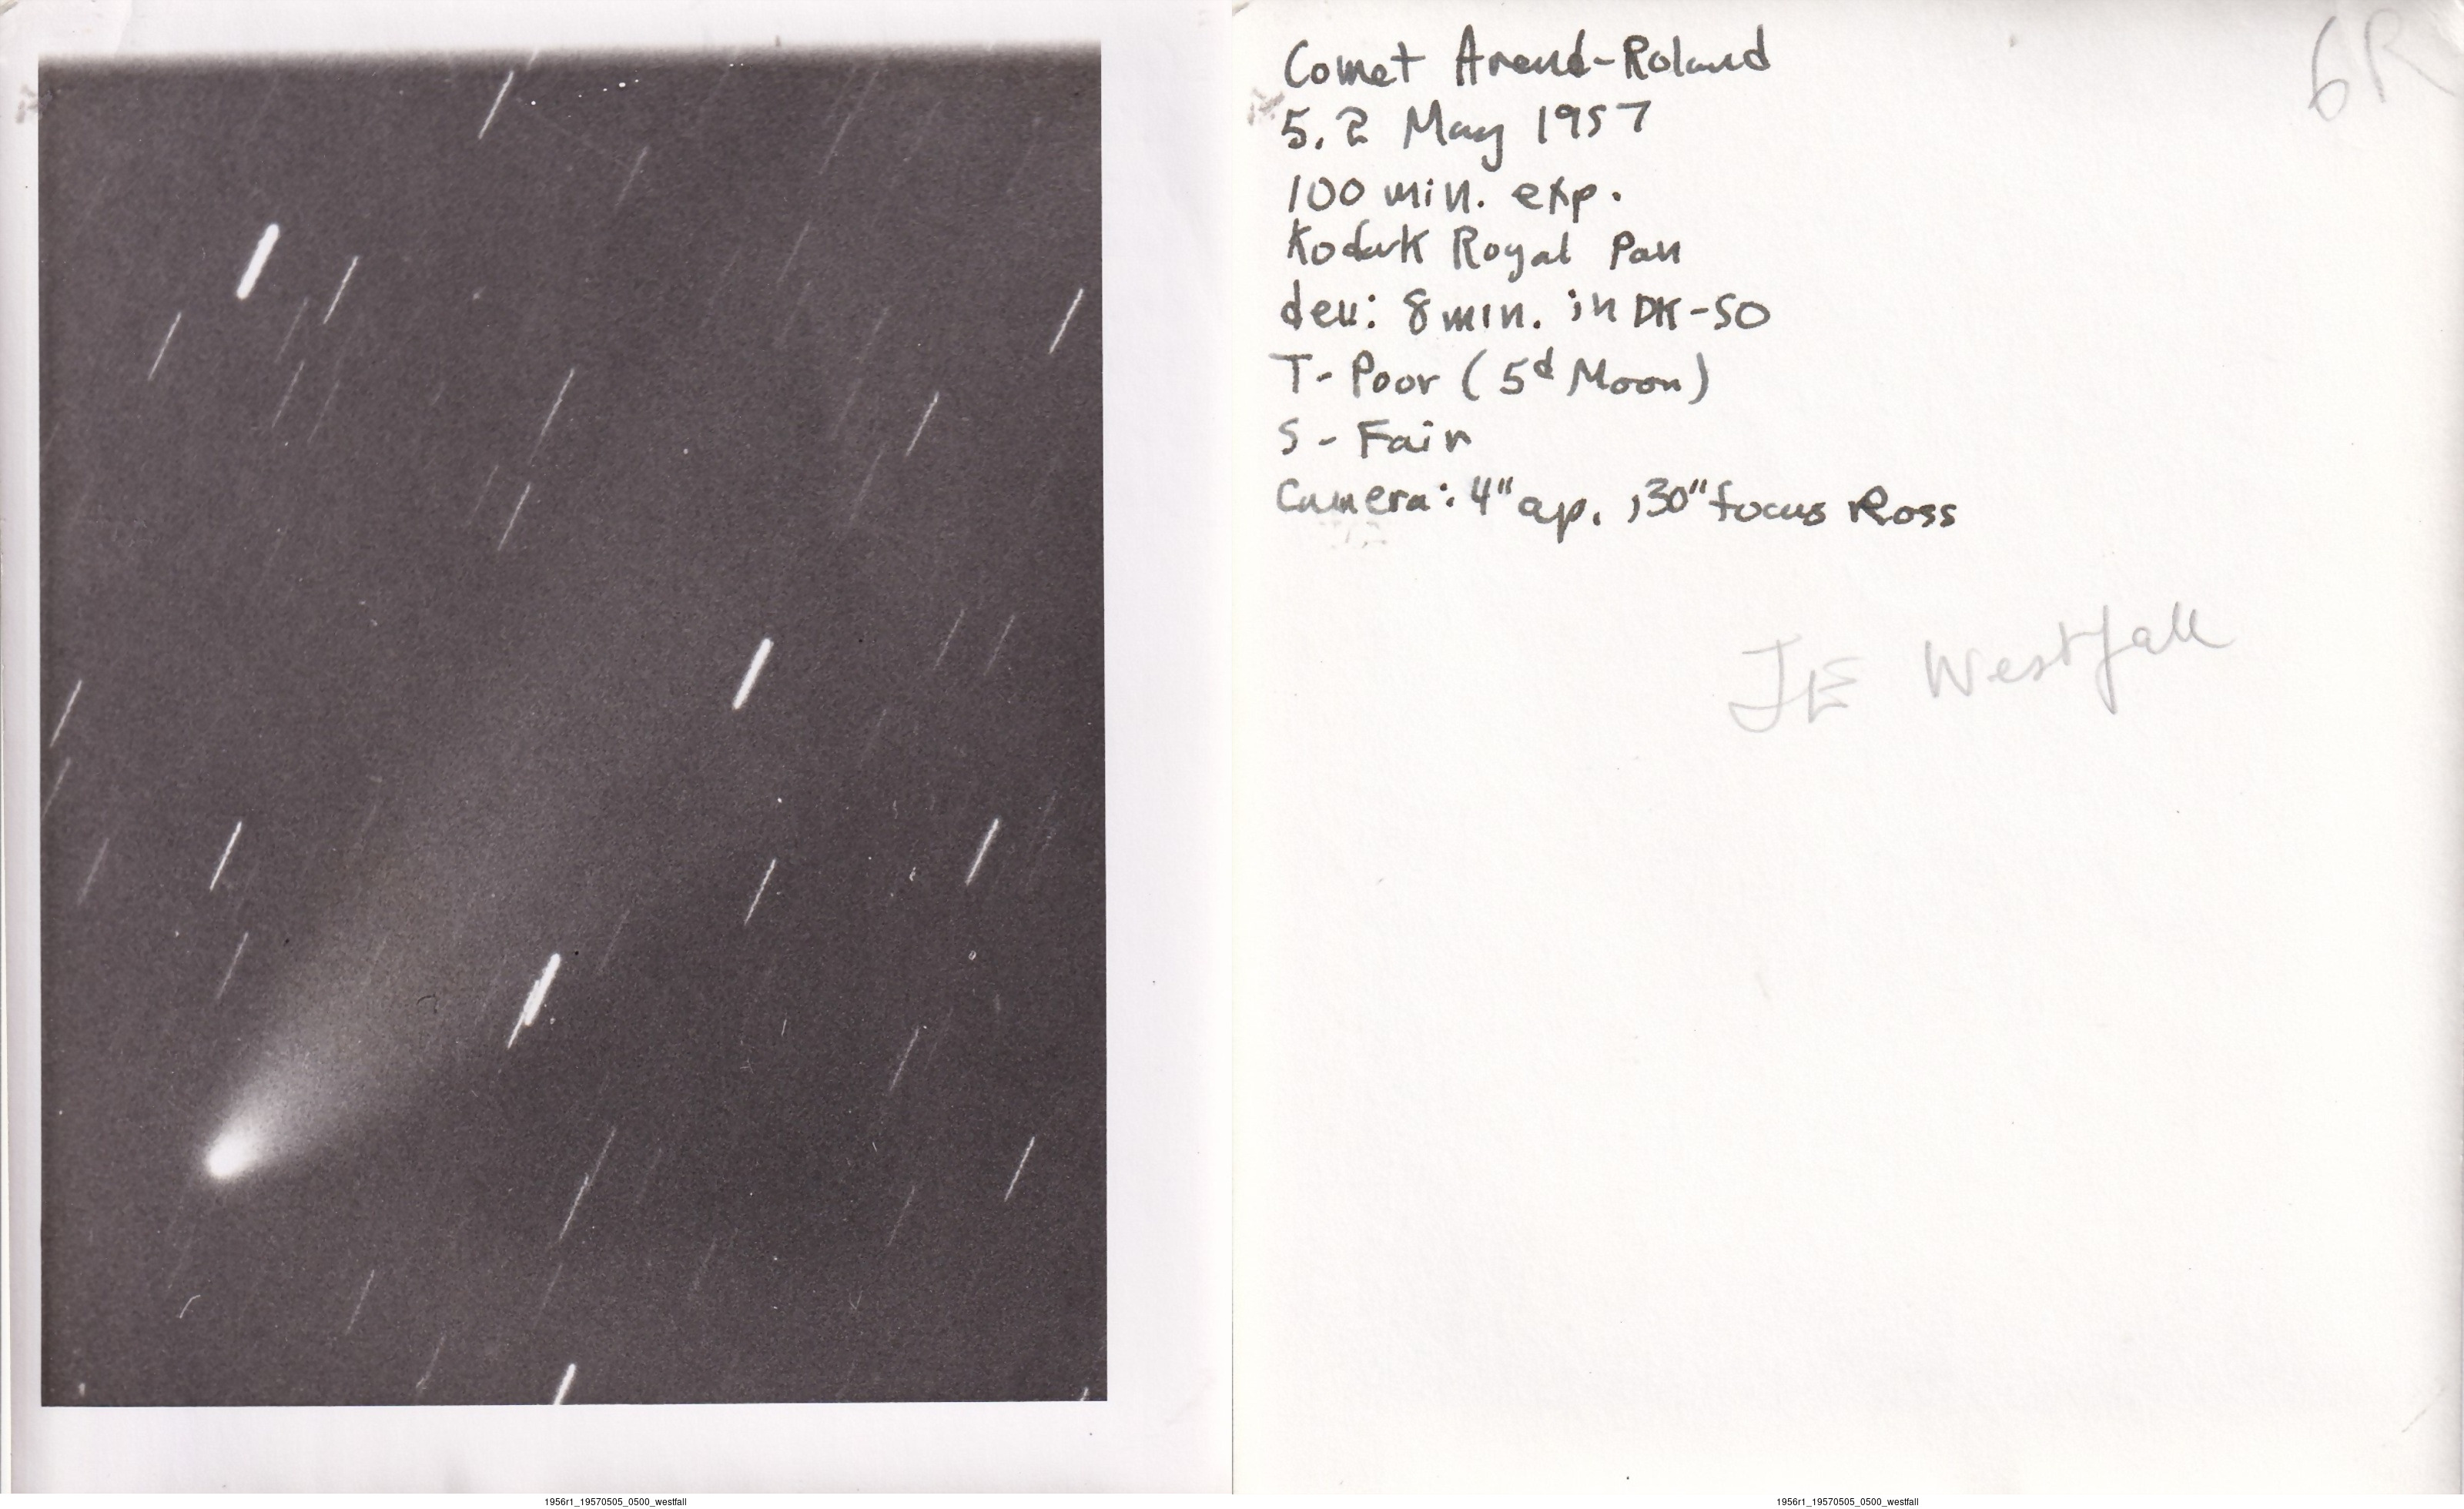 6R
Comet Arend-Roland
5.2 May 1957
100 min. exp.
Kodak Royal Pan
dev: 8 min. in DK-50
T- Poor (5d Moon)
S - Fair
Camera: 4" ap., 30" focus Ross
JE Westfall
1956r1_19570505_0500_westfall
1956r1_19570505_0500_westfall